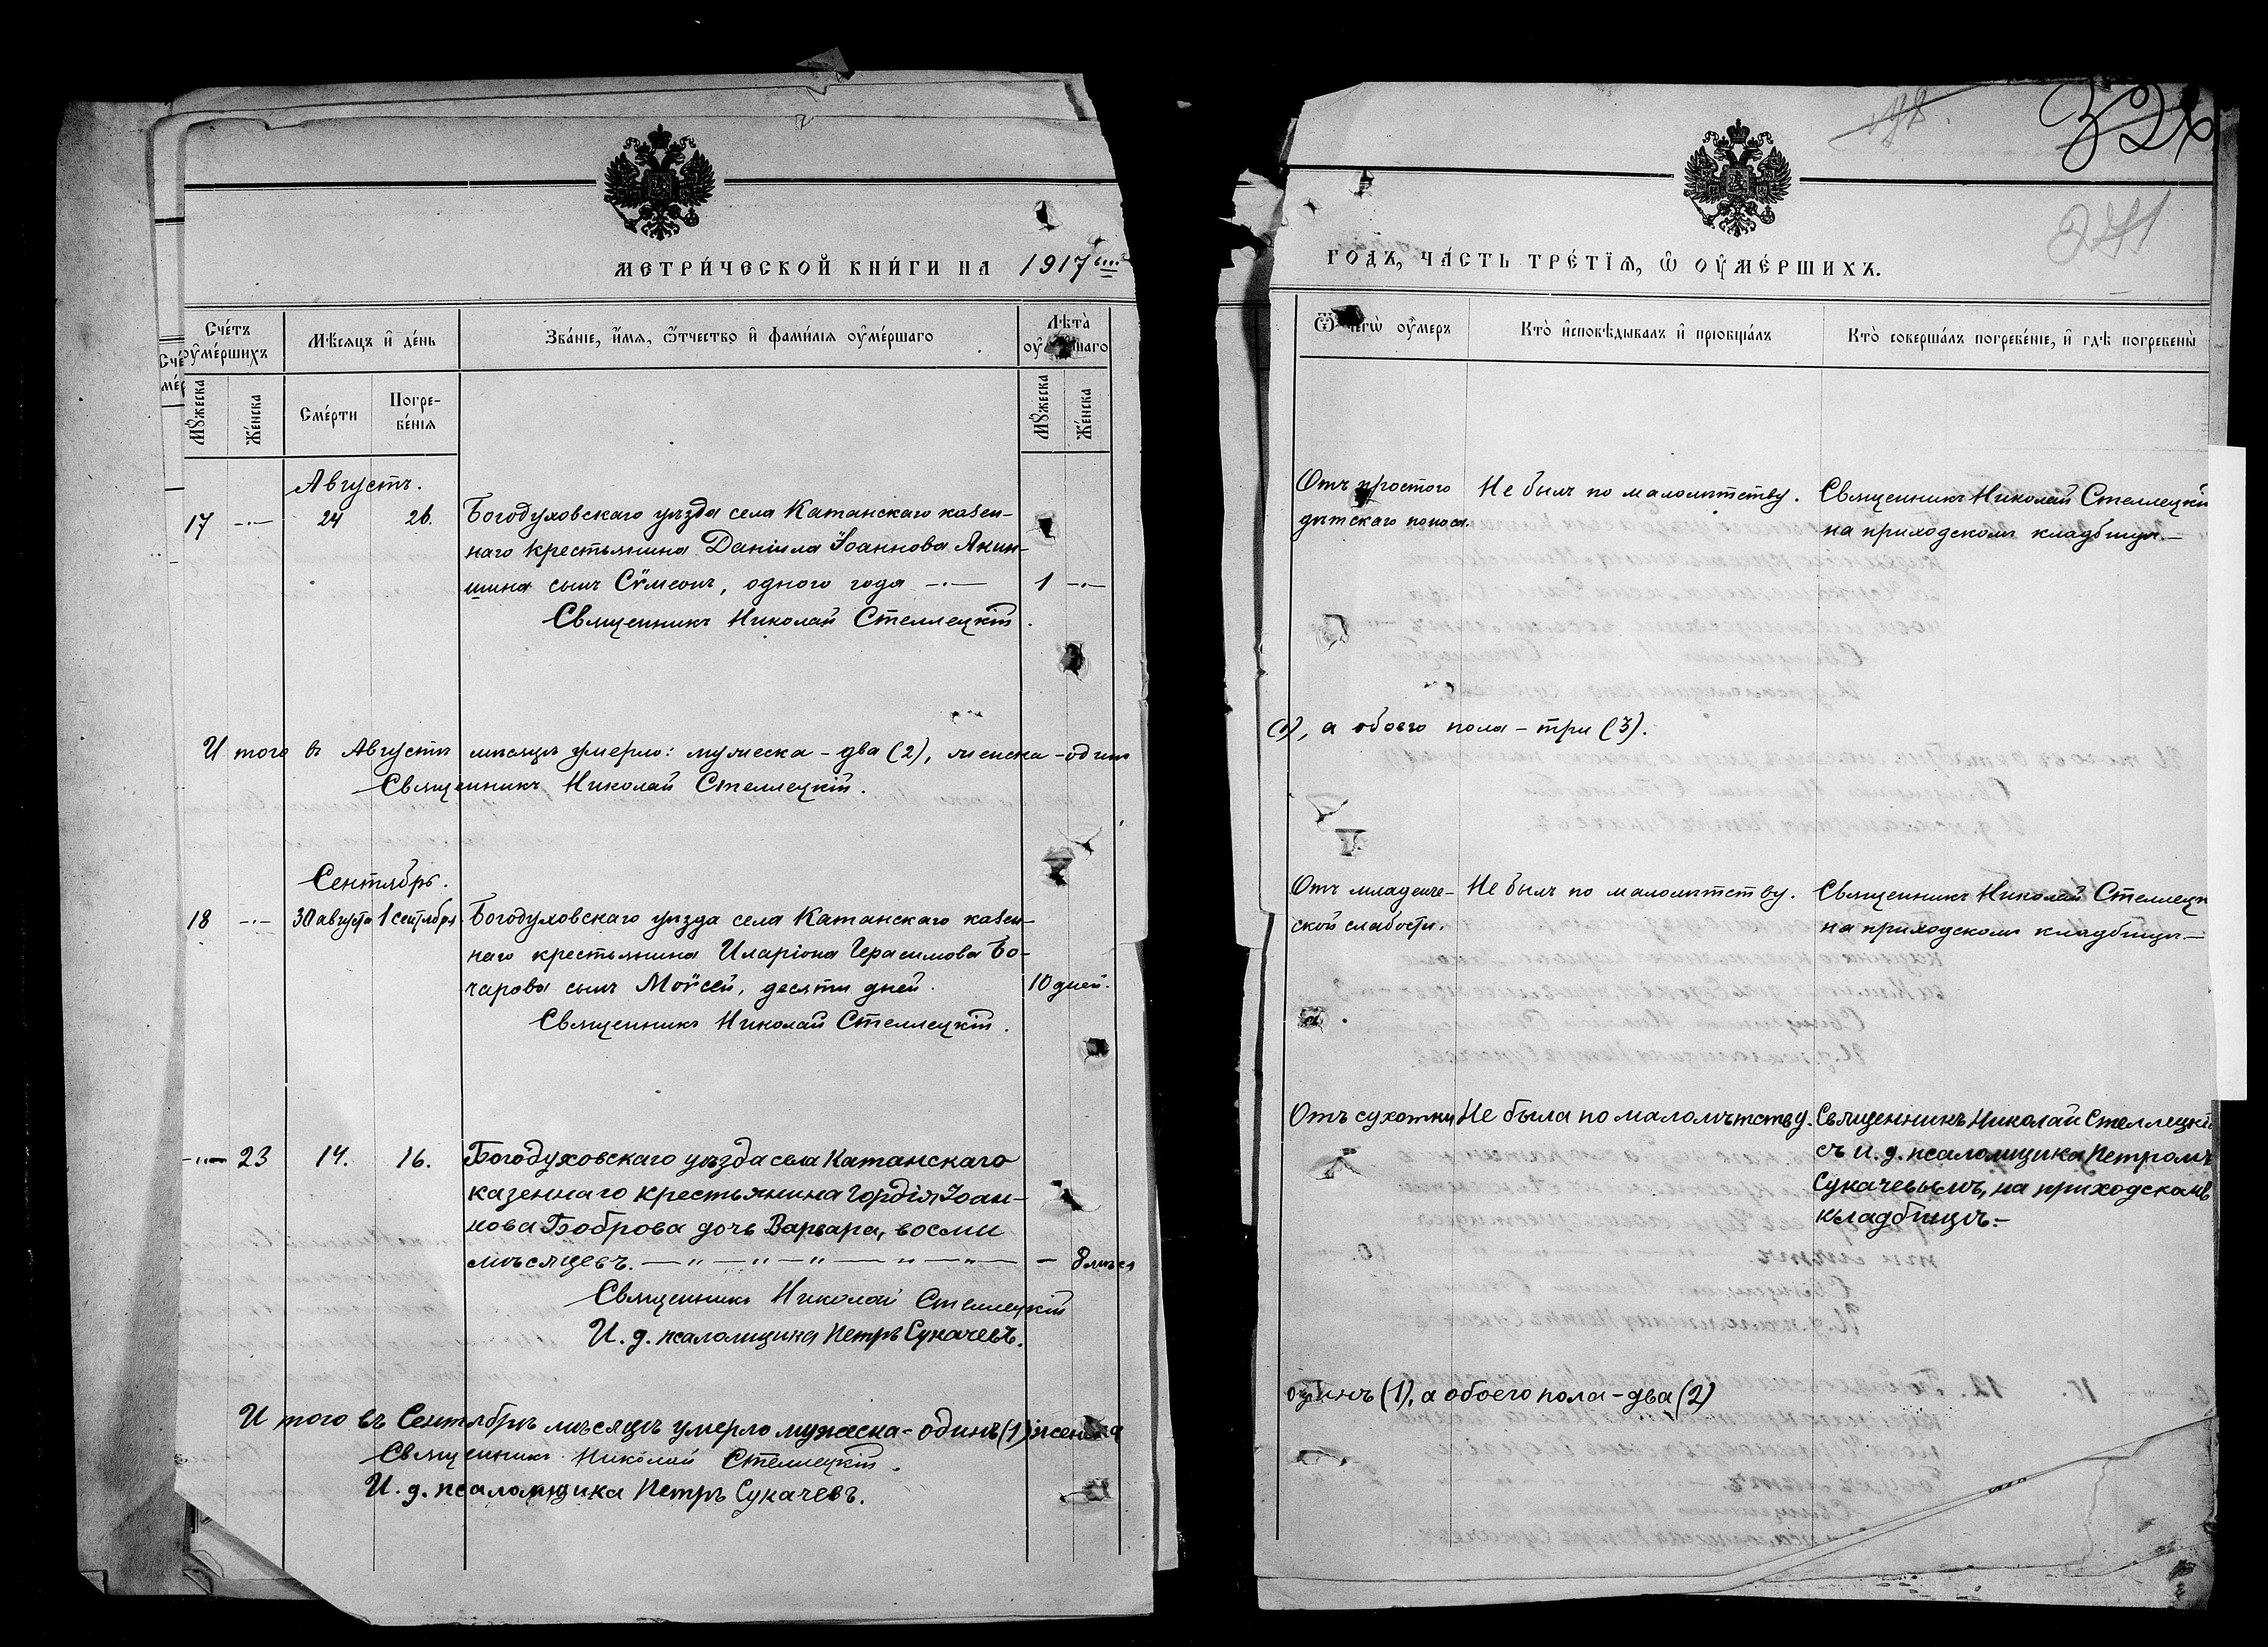 328
271
МЕТРИ́ЧЕСКОЙ КНИ́ГИ НА 1917
ГО́ДЪ, ЧА́СТЬ ТРЕ́ТЇѦ, Ѡ ОУМЕ́РШИХЪ.
Сче́тъ оуме́ршихъ
Мѣ́сяцъ и де́нь
Зва́ніе, и́мя, ѻ́тчество и фами́лія оуме́ршаго
Лѣ́та
Ѿ чегѡ̀ оу́меръ
Кто̀ исповѣ́дывалъ и пріобща́лъ
Кто̀ соверша́лъ погребе́ніе, и гдѣ̀ погребены̀
Мꙋ́жеска
Же́нска
Сме́рти
Погре-
бе́нія
Мꙋ́жеска
Же́нска
Августъ.
17 -·- 24 26.
Богодуховскаго уѣзда села Катанскаго казен-
наго крестьянина Даніила Іоаннова Акин-
шина сынъ Сѵмеонъ, одного года -·- 1 -·-
Священникъ Николай Стеллецкій.
Отъ простого
дѣтскаго поноса.
Не былъ по малолѣтству.
Священникъ Николай Стеллецкій
на приходскомъ кладбищѣ.-
И того въ Августѣ мѣсяцѣ умерло: мужеска - два (2), женска - одинъ
(1), а обоего пола - три (3).
Священникъ Николай Стеллецкій.
Сентябрь.
18 -·- 30 августа 1 сентября
Богодуховскаго уѣзда села Катанскаго казен-
наго крестьянина Иларіона Герасимова Бо-
чарова сынъ Моѵсей, десяти дней. 10 дней.
Священникъ Николай Стеллецкій.
Отъ младенче-
ской слабости.
Не былъ по малолѣтству.
Священникъ Николай Стеллецк
на приходскомъ кладбищѣ.-
-"- 23 14. 16.
Богодуховскаго уѣзда села Катанскаго
казеннаго крестьянина Гордія Іоан-
нова Боброва дочь Варвара, восми
мѣсяцевъ. — " — " — " — " — " — - 8 мѣся
Священникъ Николай Стеллецкій
И. д. псаломщика Петръ Сукачевъ.
Отъ сухотки
Не была по малолѣтству.
Священникъ Николай Стеллецкі
съ и. д. псаломщика Петромъ
Сукачевымъ, на приходскомъ
кладбищѣ.-
И того въ Сентябрѣ мѣсяцѣ умерло мужеска - одинъ (1) женска
одинъ (1), а обоего пола - два (2)
Священникъ Николай Стеллецкій.
И. д. псаломщика Петръ Сукачевъ.